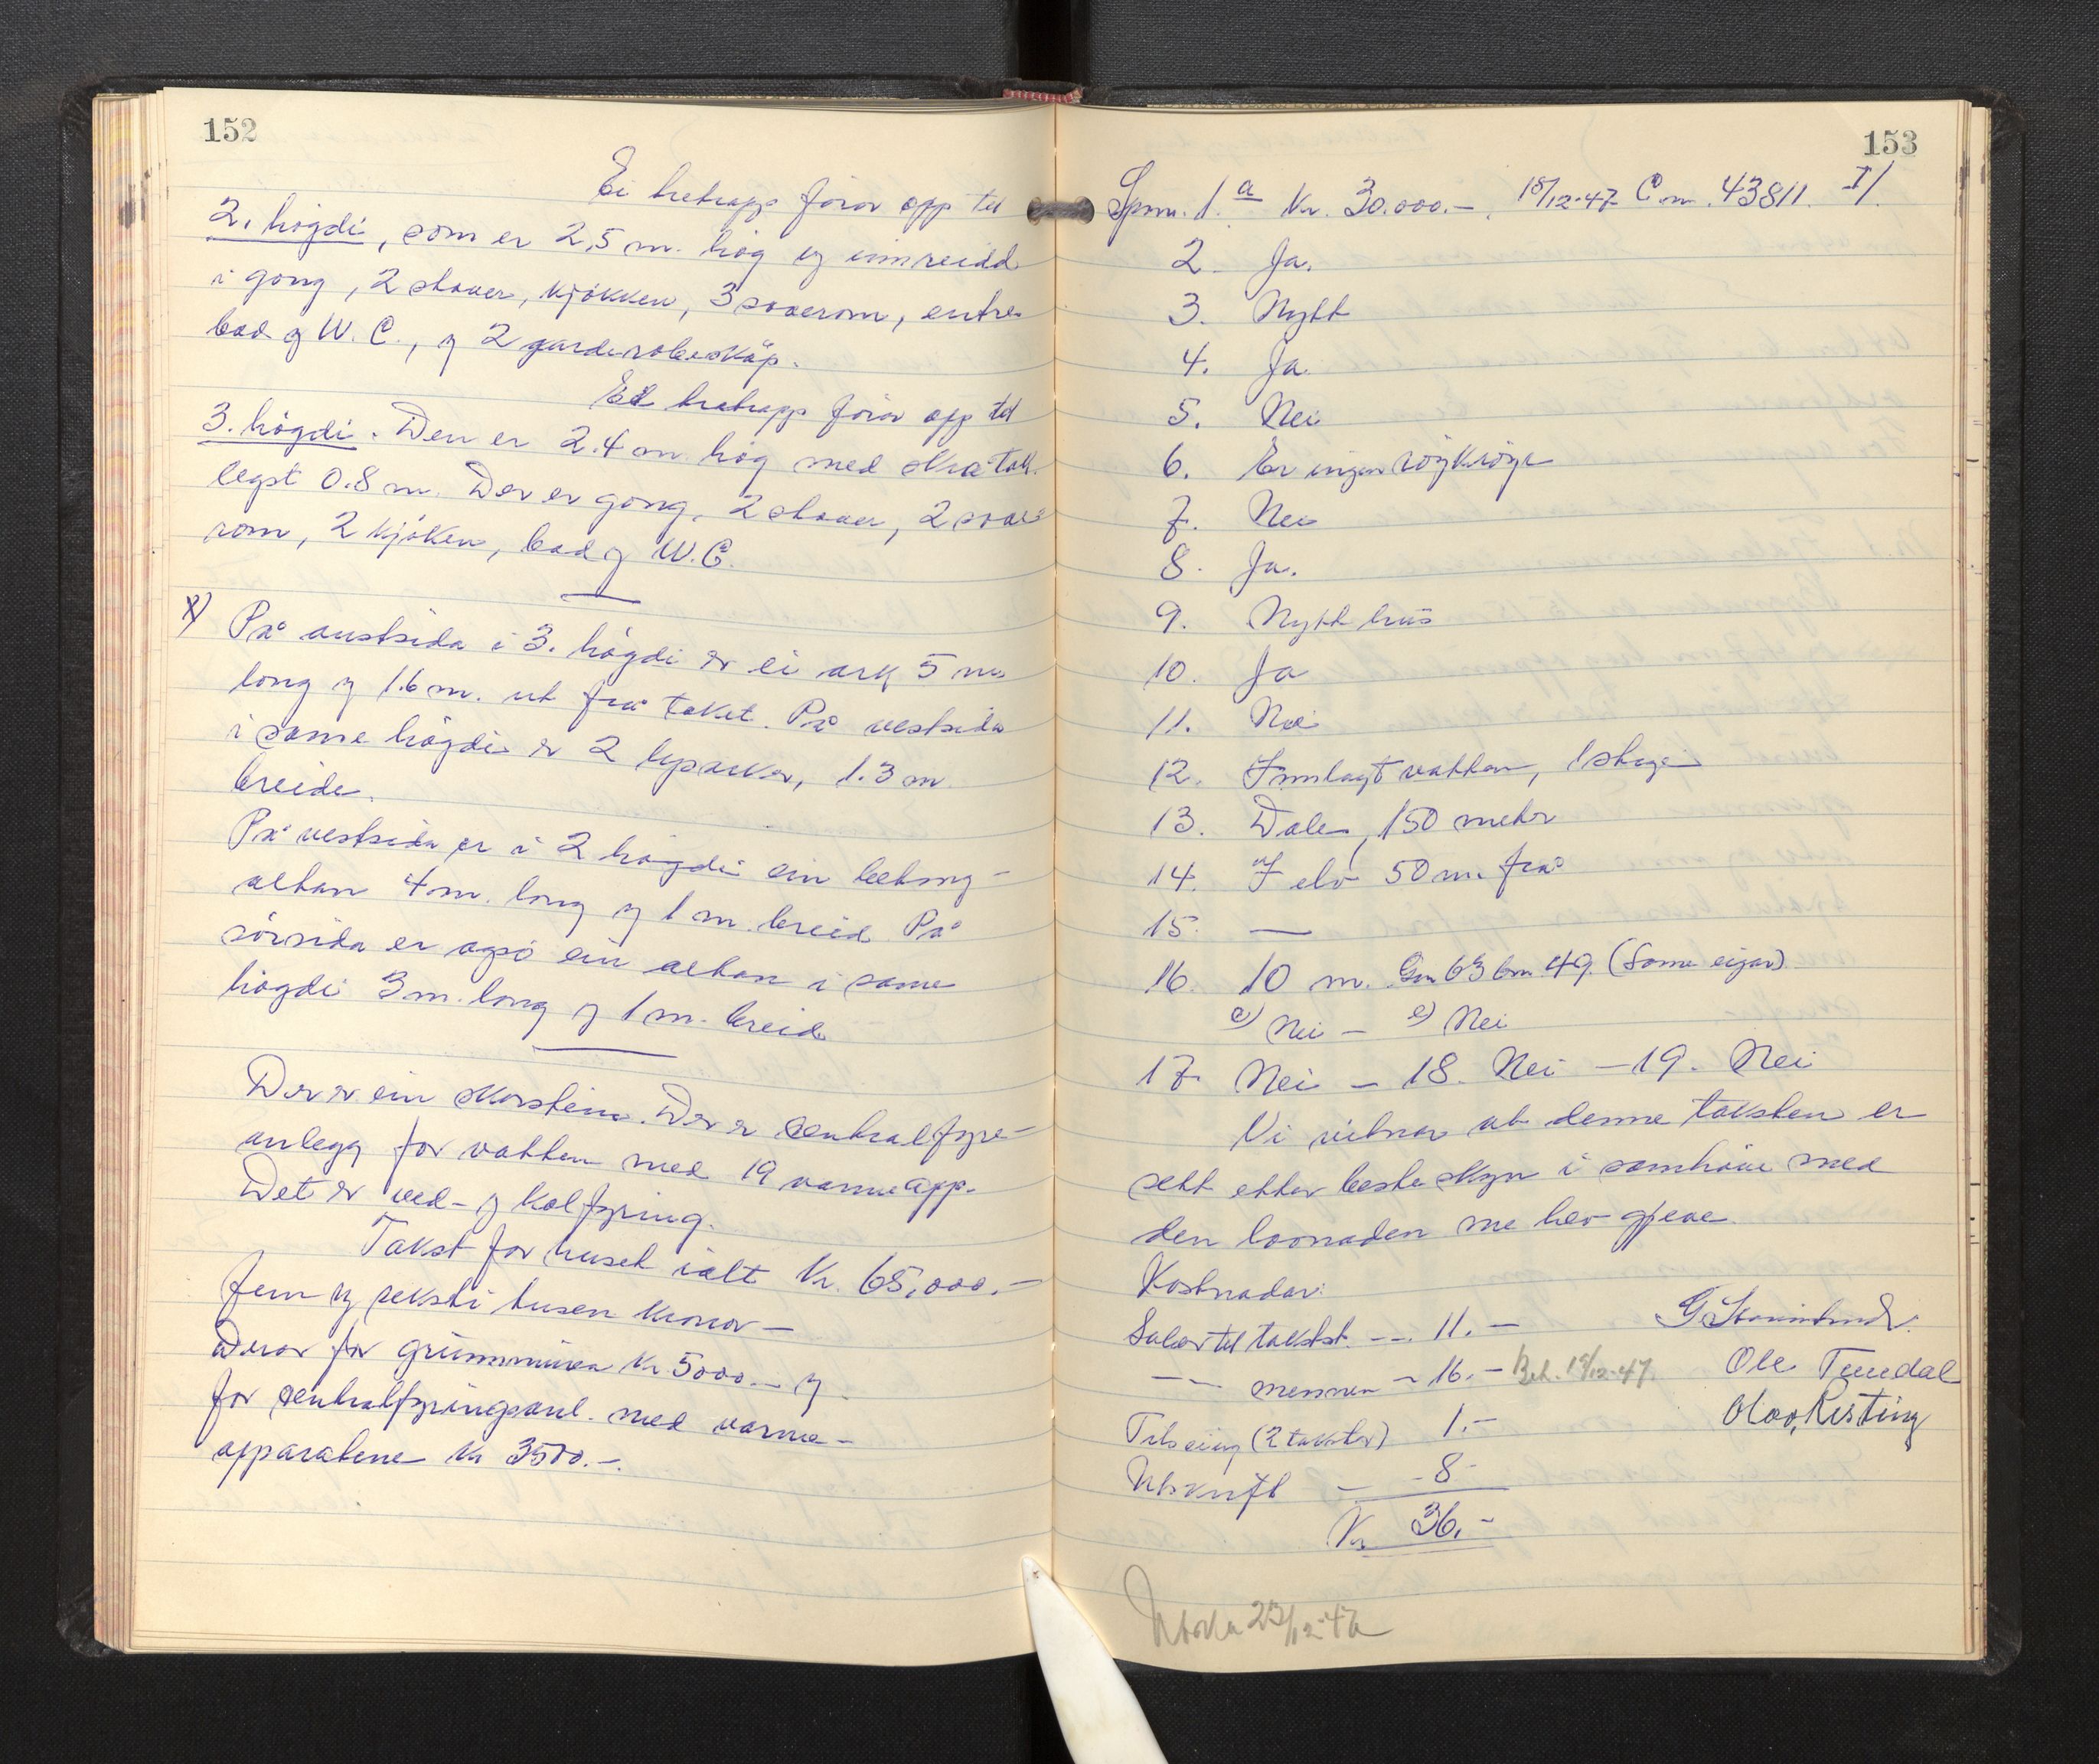 152
Ei tretrapp förer opp til
2. högdi, som er 2,5 m. hög og innreidd
i gong, 2 stover, kjökken, 3 soverom, entre
bad og W.C., og 2 garderobeskåp.
Ei tretrapp förer opp til
3. högdi. Den er 2.4 m. hög med skråtak
legst 0.8 m. Der er gong, 2 stover, 2 sove
rom, 2 kjöken, bad og W.C.
X) På austsida i 3. högdi er ei ark 5 m.
long og 1.6 m. ut frå taket. På vestsida
i same högdi er 2 , 1.3 m
breide.
På vestsida er i 2 högdi ein betong-
altan 4 m. long og 1 m. breid. På
sörsida er også ein altan i same
högdi 3 m. long og 1 m. breid
Der er ein skorstein. Der er sentralfyre-
anlegg for vatten med 19 varmeapp.
Det er ved- og kolfyring.
Takst for huset ialt Kr. 65,000.-
Fem og seksti tusen kronor -
Derav for grunnmuren Kr 5000.- og
for sentralfyringsanl. med varme-
apparatene Kr 3500.-.
153
Spm. 1. a Kr. 30.000.-. 15/12-47 C.m. 43811. I/.
2. Ja.
3. Nytt
4. Ja.
5. Nei
6. Er ingen röykröyr
7. Nei
8. Ja.
9. Nytt hus
10. Ja
11. Nei
12. Innlagt vatten, 1 stige
13. Dale, 150 meter
14. I elv 50 m. frå
15. —
16. 10 m. Gn 63 bn 49. (Same eigar)
c) Nei - e) Nei
17 Nei - 18. Nei - 19. Nei
Vi vitnar at denne taksten er
sett etter beste skyn i samhöve med
den lovnaden me hev gjeve.
Kostnadar:
Salær til takstst. -- 11.-
-- mennen - 16.- Bet. 15/12-47.
Tilseing (2 takster) 1.-
Utskrift - - 8-
Kr 36.-
G.
Ole Tundal
Olav Risting
23/12-47